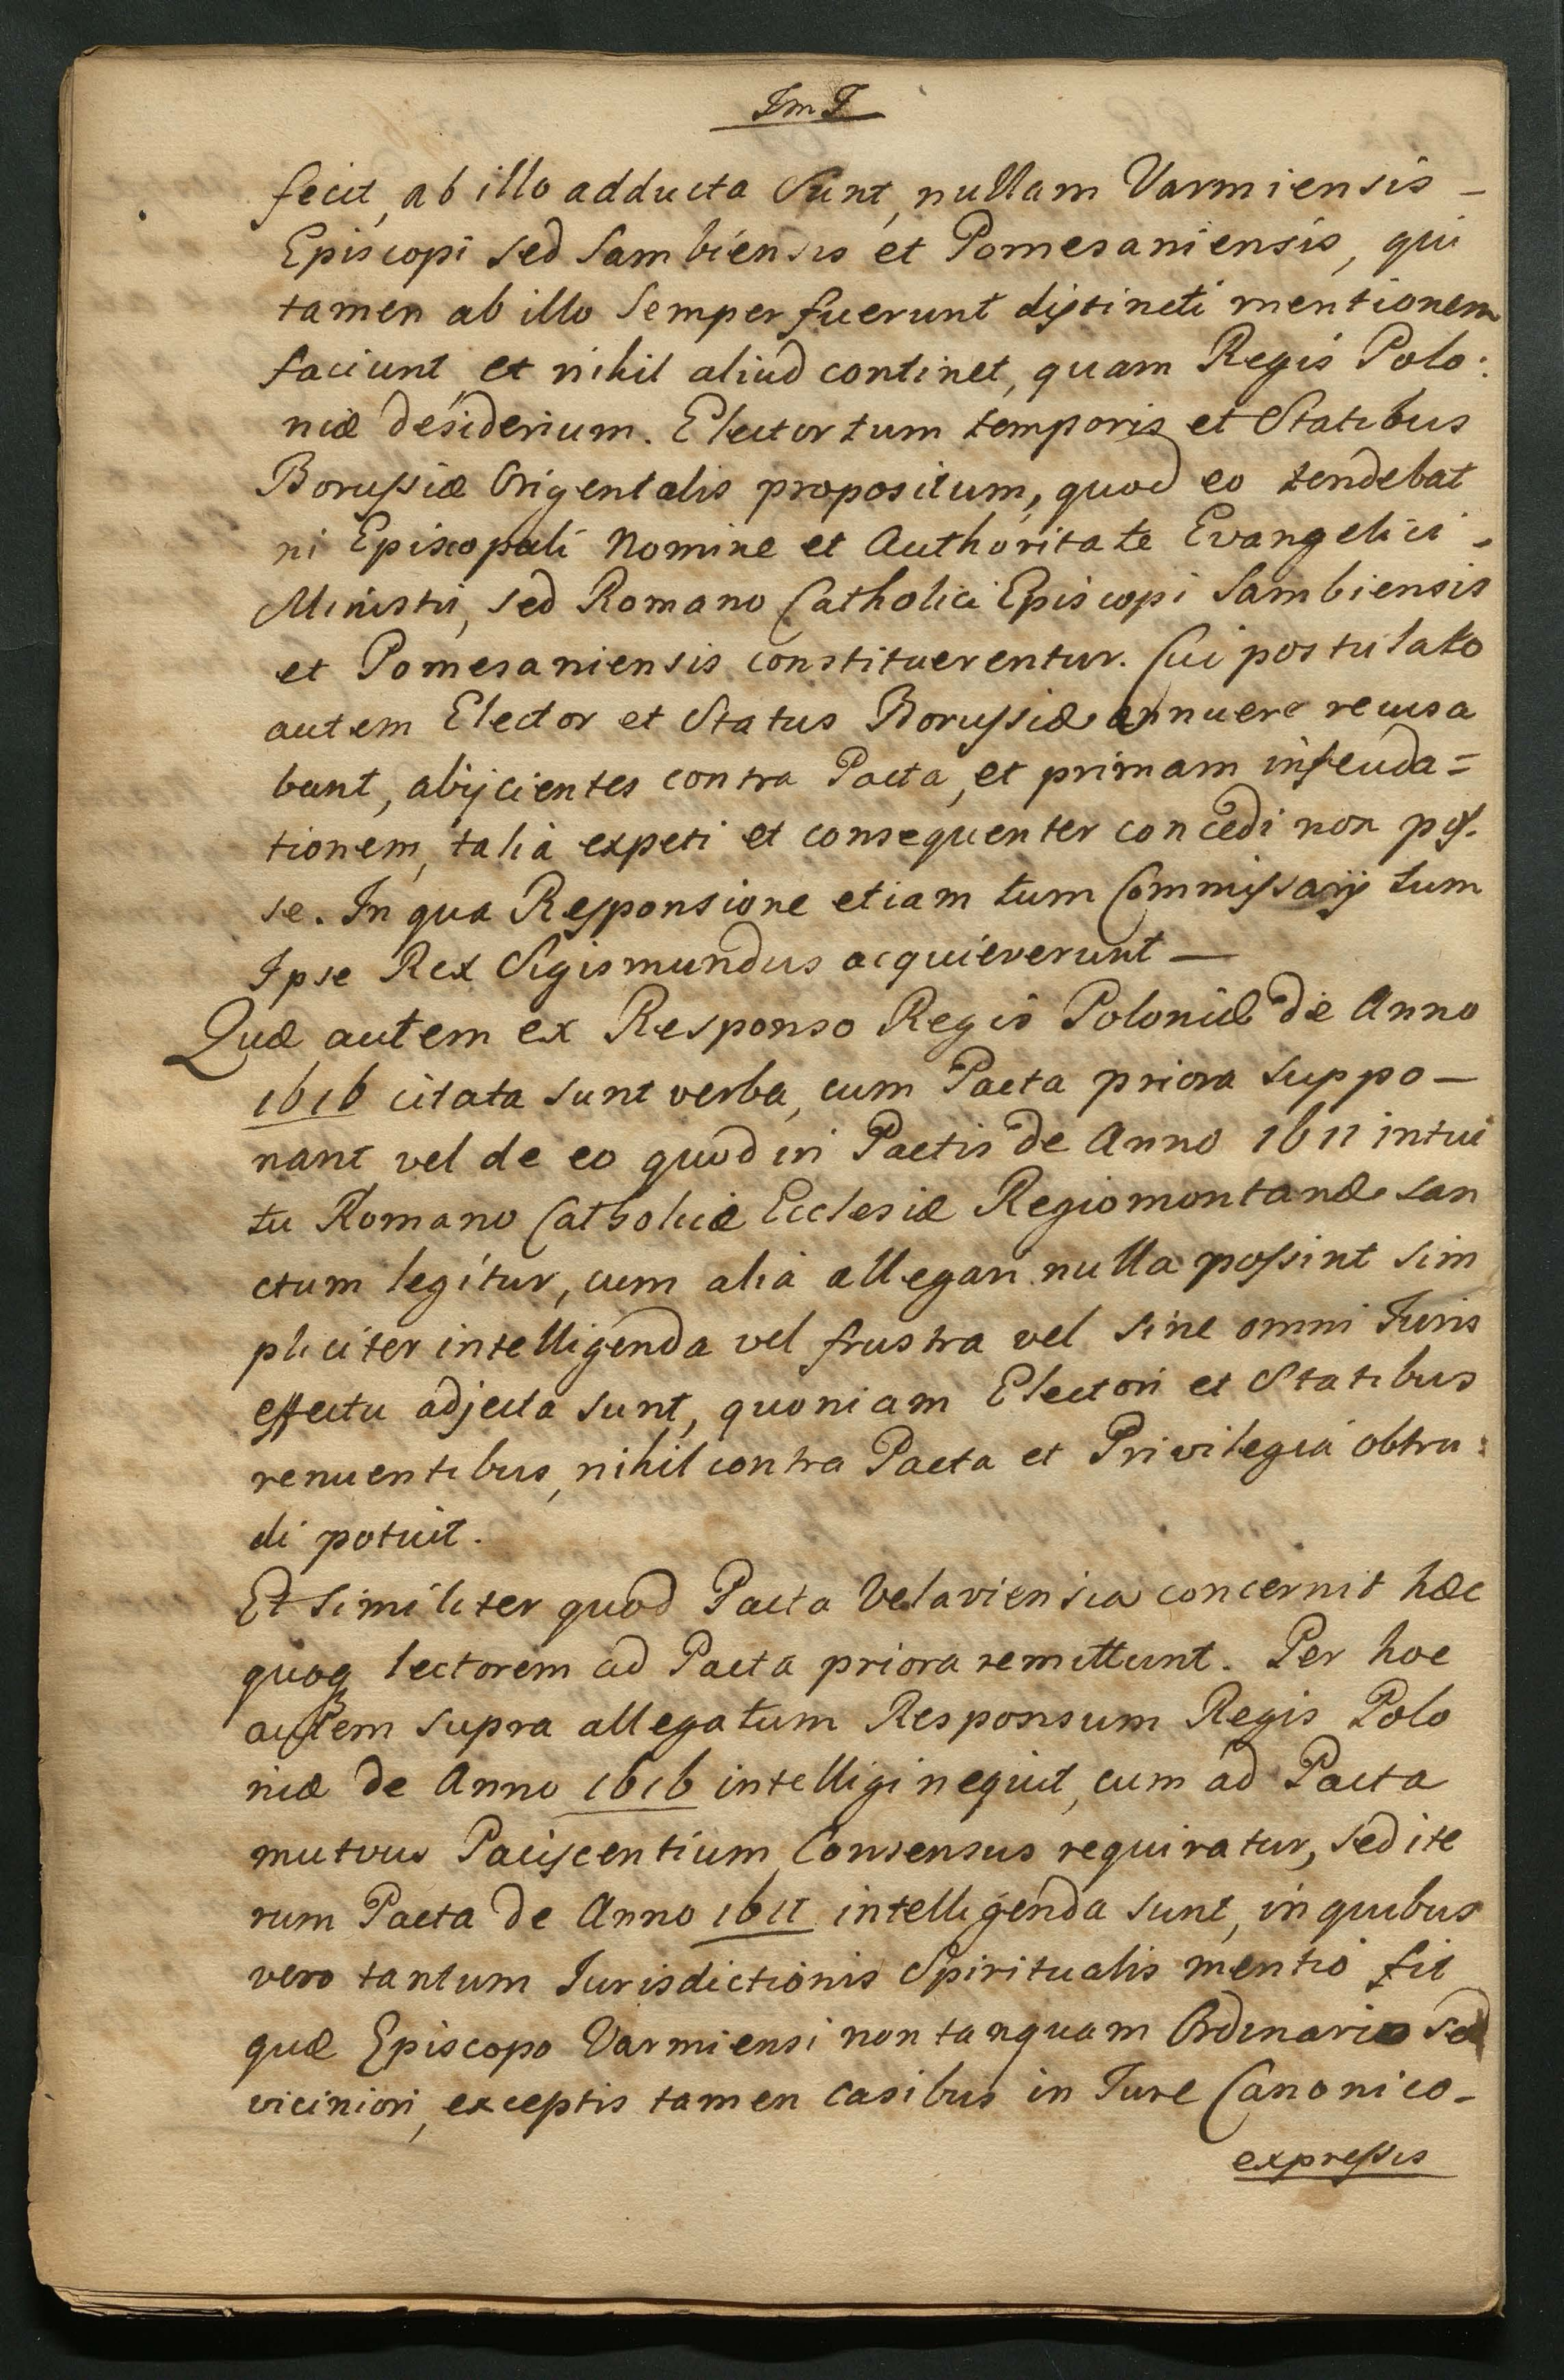 ImI
fecit, ab illo adducta sunt, nullam Varmiensis –
Episcopi sed Sambiensis et Pomesaniensis, qui
tamen ab illo semper fuerunt distincti mentionem
faciunt et nihil aliud continet, quam Regis Polo:
niæ desiderium. Elector tum temporis et Statibus
Borussiæ Origentalis propositum, quod eo tendebat
ni Episcopali Nomine et Authoritate Evangelici -
Ministri, sed Romano Catholici Episcopi Sambiensis
et Pomesaniensis constituerentur. Cui postulato
autem Elector et Status Borussiæ annuere recusa
bant, abijcientes contra Pacta, et primam infeuda=
tionem, talia expeti et consequenter concedi non pos.
se. In qua Responsione etiam tum Commissarij tum
Ipse Rex Sigismundus acquieverunt —
Quæ autem ex Responso Regis Poloniæ de Anno
1616 citata sunt verba, cum Pacta priora suppo –
nant vel de eo quod in Pactis de Anno 1611 intui
tu Romano Catholicæ Ecclesiæ Regiomontanæ san
ctum legitur, cum alia allegari nulla possint sim
pliciter intelligenda vel frustra vel sine omni Juris
effectu adjecta sunt, quoniam Electori et Statibus
renuentibus, nihil contra Pacta et Privilegia obtru:
di potuit.
Et similiter quod Pacta Velaviensia concernit hæc
quoq lectorem ad Pacta priora remittunt. Per hoc
autem supra allegatum Responsum Regis Polo
niæ de Anno 1616 intelligi nequit, cum ad Pacta
mutuus Paciscentium Consensus requiratur, sed ite
rum Pacta de Anno 1611 intelligenda sunt, in quibus
vero tantum Jurisdictionis Spiritualis mentio fit
quæ Episcopo Varmiensi non tanquam Ordinario sed
viciniori, exceptis tamen casibus in Jure Canonico -
expressis